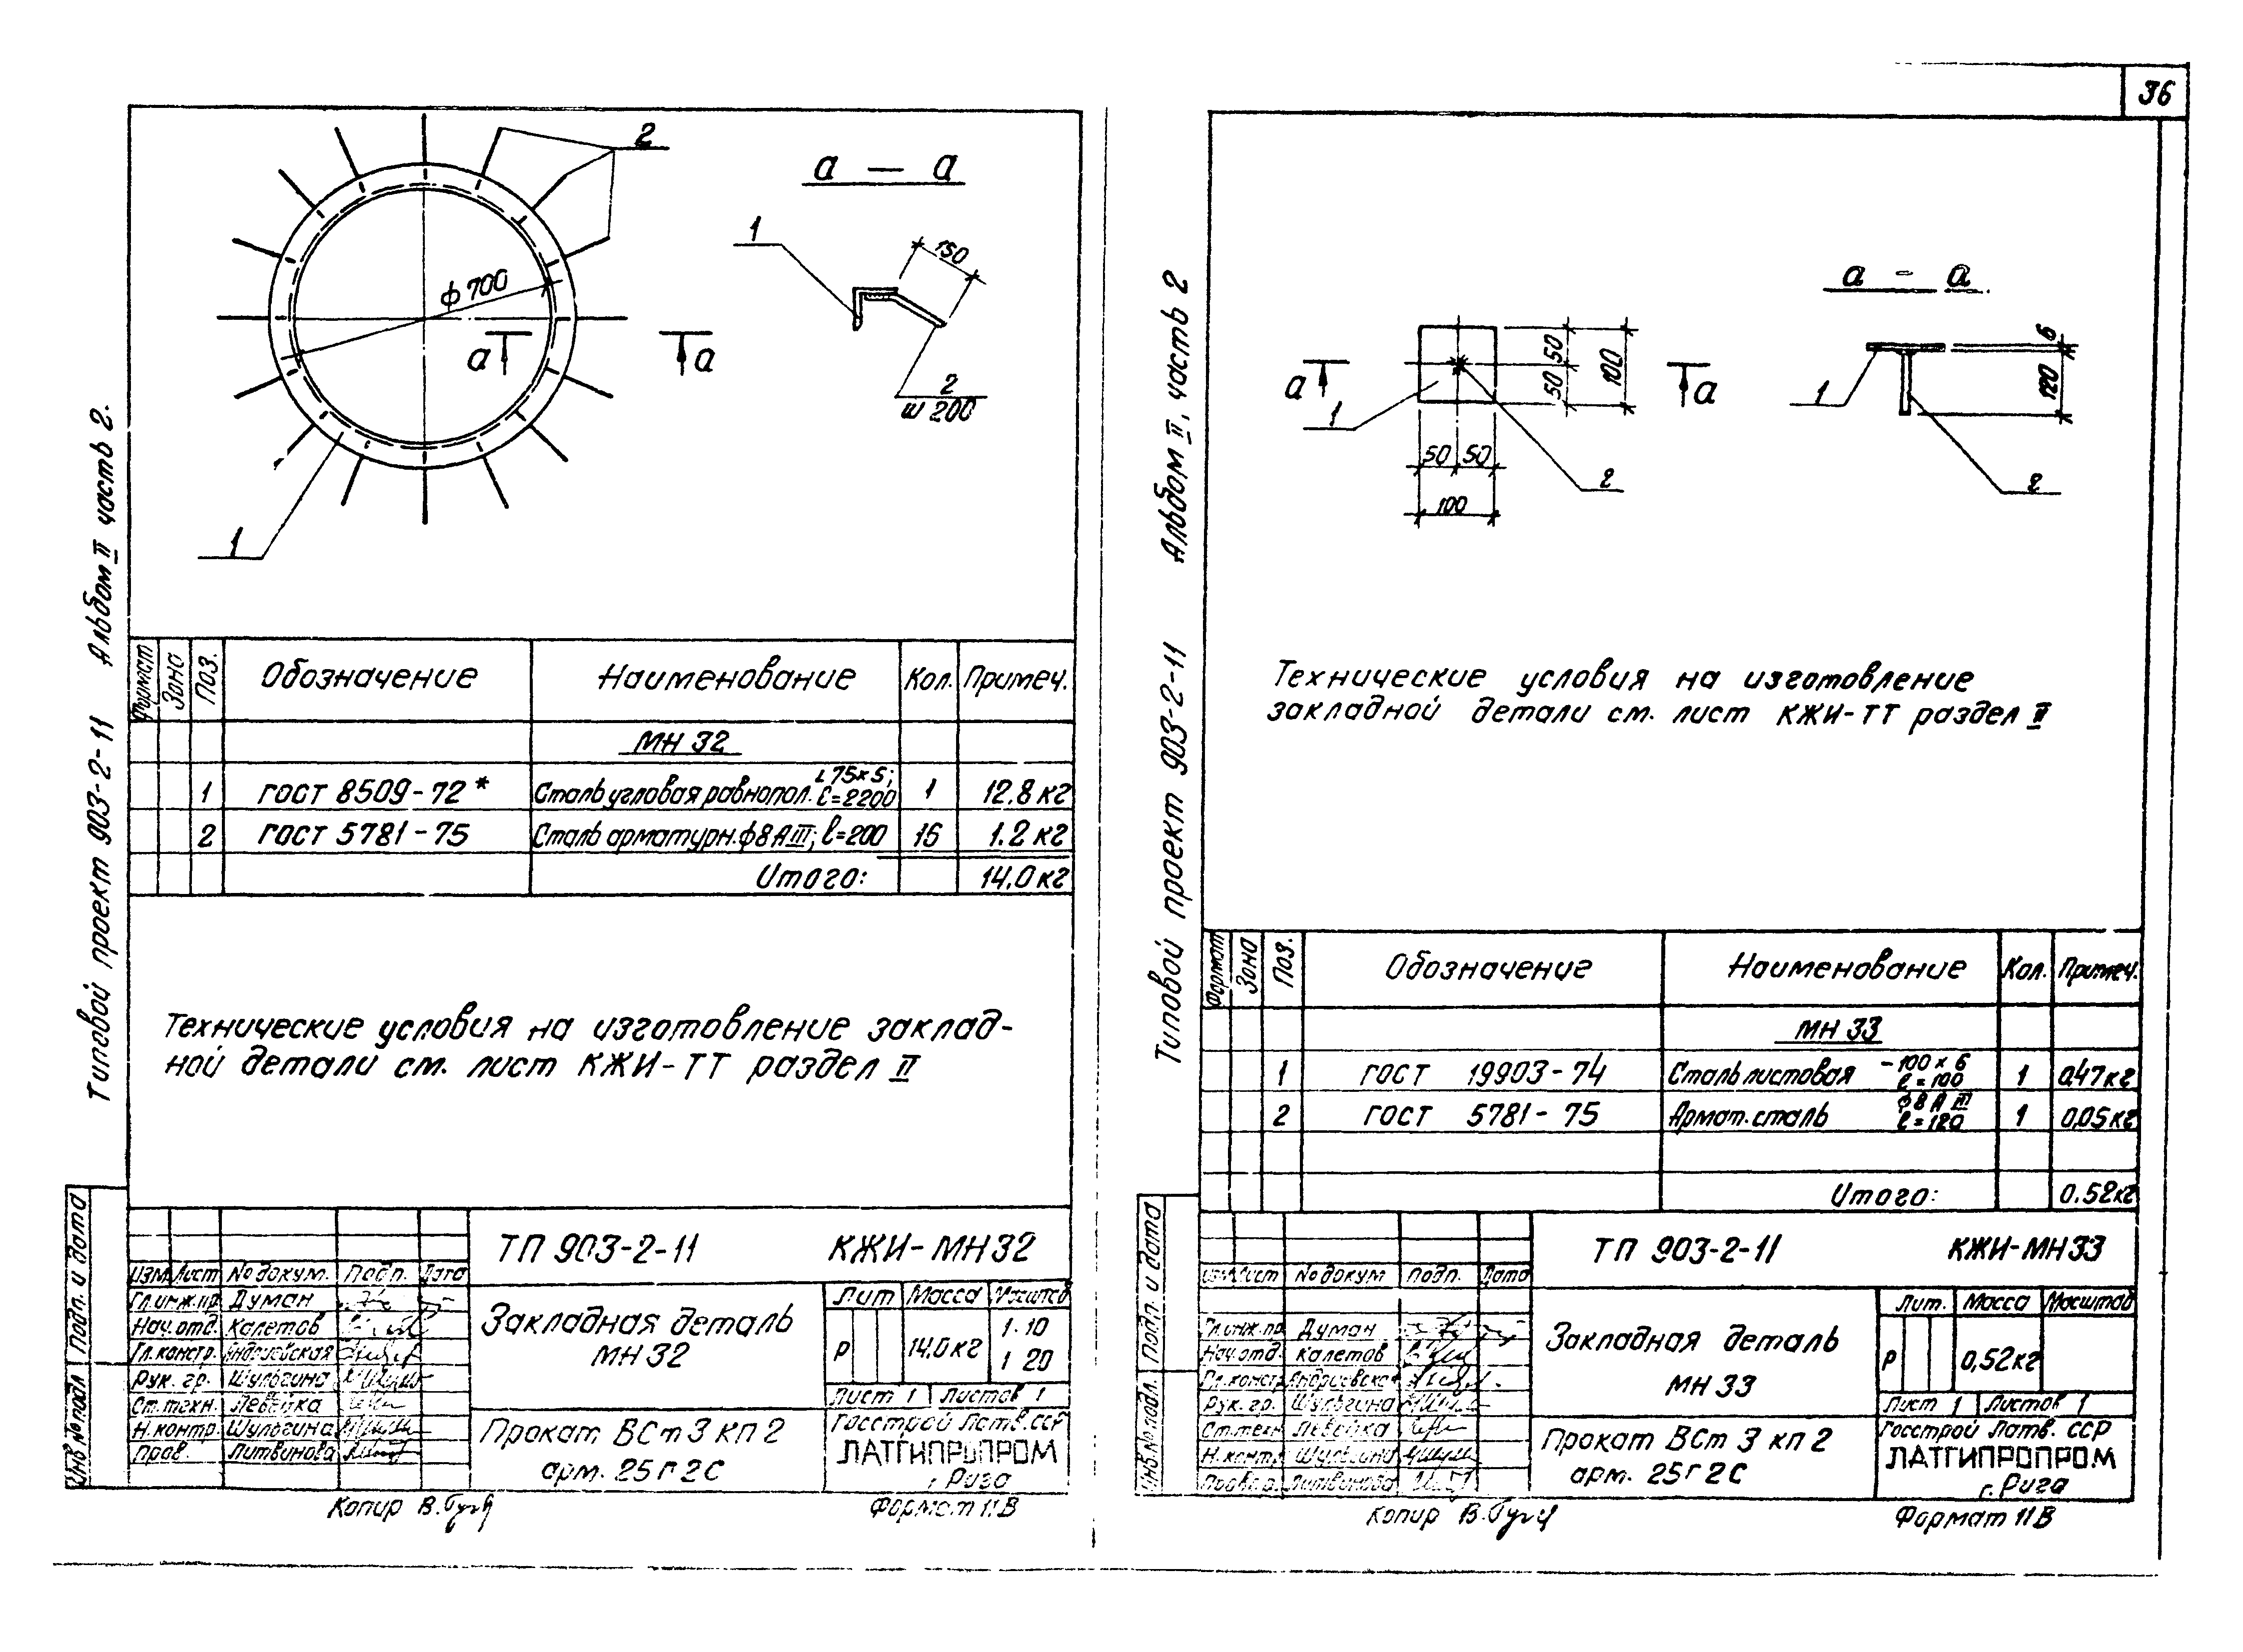 36
Типовой проект 903-2-11 Альбом II часть 2.
2
а — а
1
150
ф 700
а
а
2
ш 200
1
Формат Зона Поз. Обозначение Наименование Кол. Примеч.
МН 32
1 ГОСТ 8509-72* Сталь угловая равнопол. L 75×5; ℓ=2200 1 12.8 кг
2 ГОСТ 5781-75 Сталь арматурн. ф8 АIII; ℓ=200 16 1.2 кг
Итого: 14.0 кг
Технические условия на изготовление заклад-
ной детали см. лист КЖИ-ТТ раздел II
Подп. и дата
Инв № подл
ТП 903-2-11 КЖИ-МН32
Изм. Лист № докум. Подп. Дата
Гл.инж.пр. Думан
Нач.отд. Калетов
Гл.констр. Андриевская
Рук. гр. Шульгина
Ст.техн. Левейка
Н.контр. Шульгина
Пров. Литвинова
Закладная деталь
МН 32
Лит Масса Масштаб
Р 14,0 кг 1:10
1 20
Лист 1 Листов 1
Прокат ВСт 3 кп 2
арм. 25Г2С
Госстрой Латв.ССР
ЛАТГИПРОПРОМ
г. Рига
Копир В.
Формат 11В
Типовой проект 903-2-11 Альбом II, часть 2
а - а
а
а
1
50
50
100
50 50
100
2
6
120
1
2
Технические условия на изготовление
закладной детали см. лист КЖИ-ТТ раздел II
Формат Зона Поз. Обозначение Наименование Кол. Примеч.
МН 33
1 ГОСТ 19903-74 Сталь листовая -100×6 ℓ=100 1 0.47 кг
2 ГОСТ 5781-75 Армат. сталь ф8 А III ℓ=120 1 0,05 кг
Итого: 0.52 кг
Подп. и дата
Инв.№ подл.
ТП 903-2-11 КЖИ-МН33
Изм. Лист № докум Подп. Дата
Гл.инж.пр. Думан
Нач.отд. Калетов
Гл.констр. Андриевска
Рук. гр. Шульгина
Ст.техн Левейка
Н.контр. Шульгина
Провер. Литвинова
Закладная деталь
МН 33
Лит. Масса Масштаб
Р 0,52 кг
Лист 1 Листов 1
Прокат ВСт 3 кп 2
арм. 25Г2С
Госстрой Латв. ССР
ЛАТГИПРОПРОМ
г. Рига
Копир В.
Формат 11В